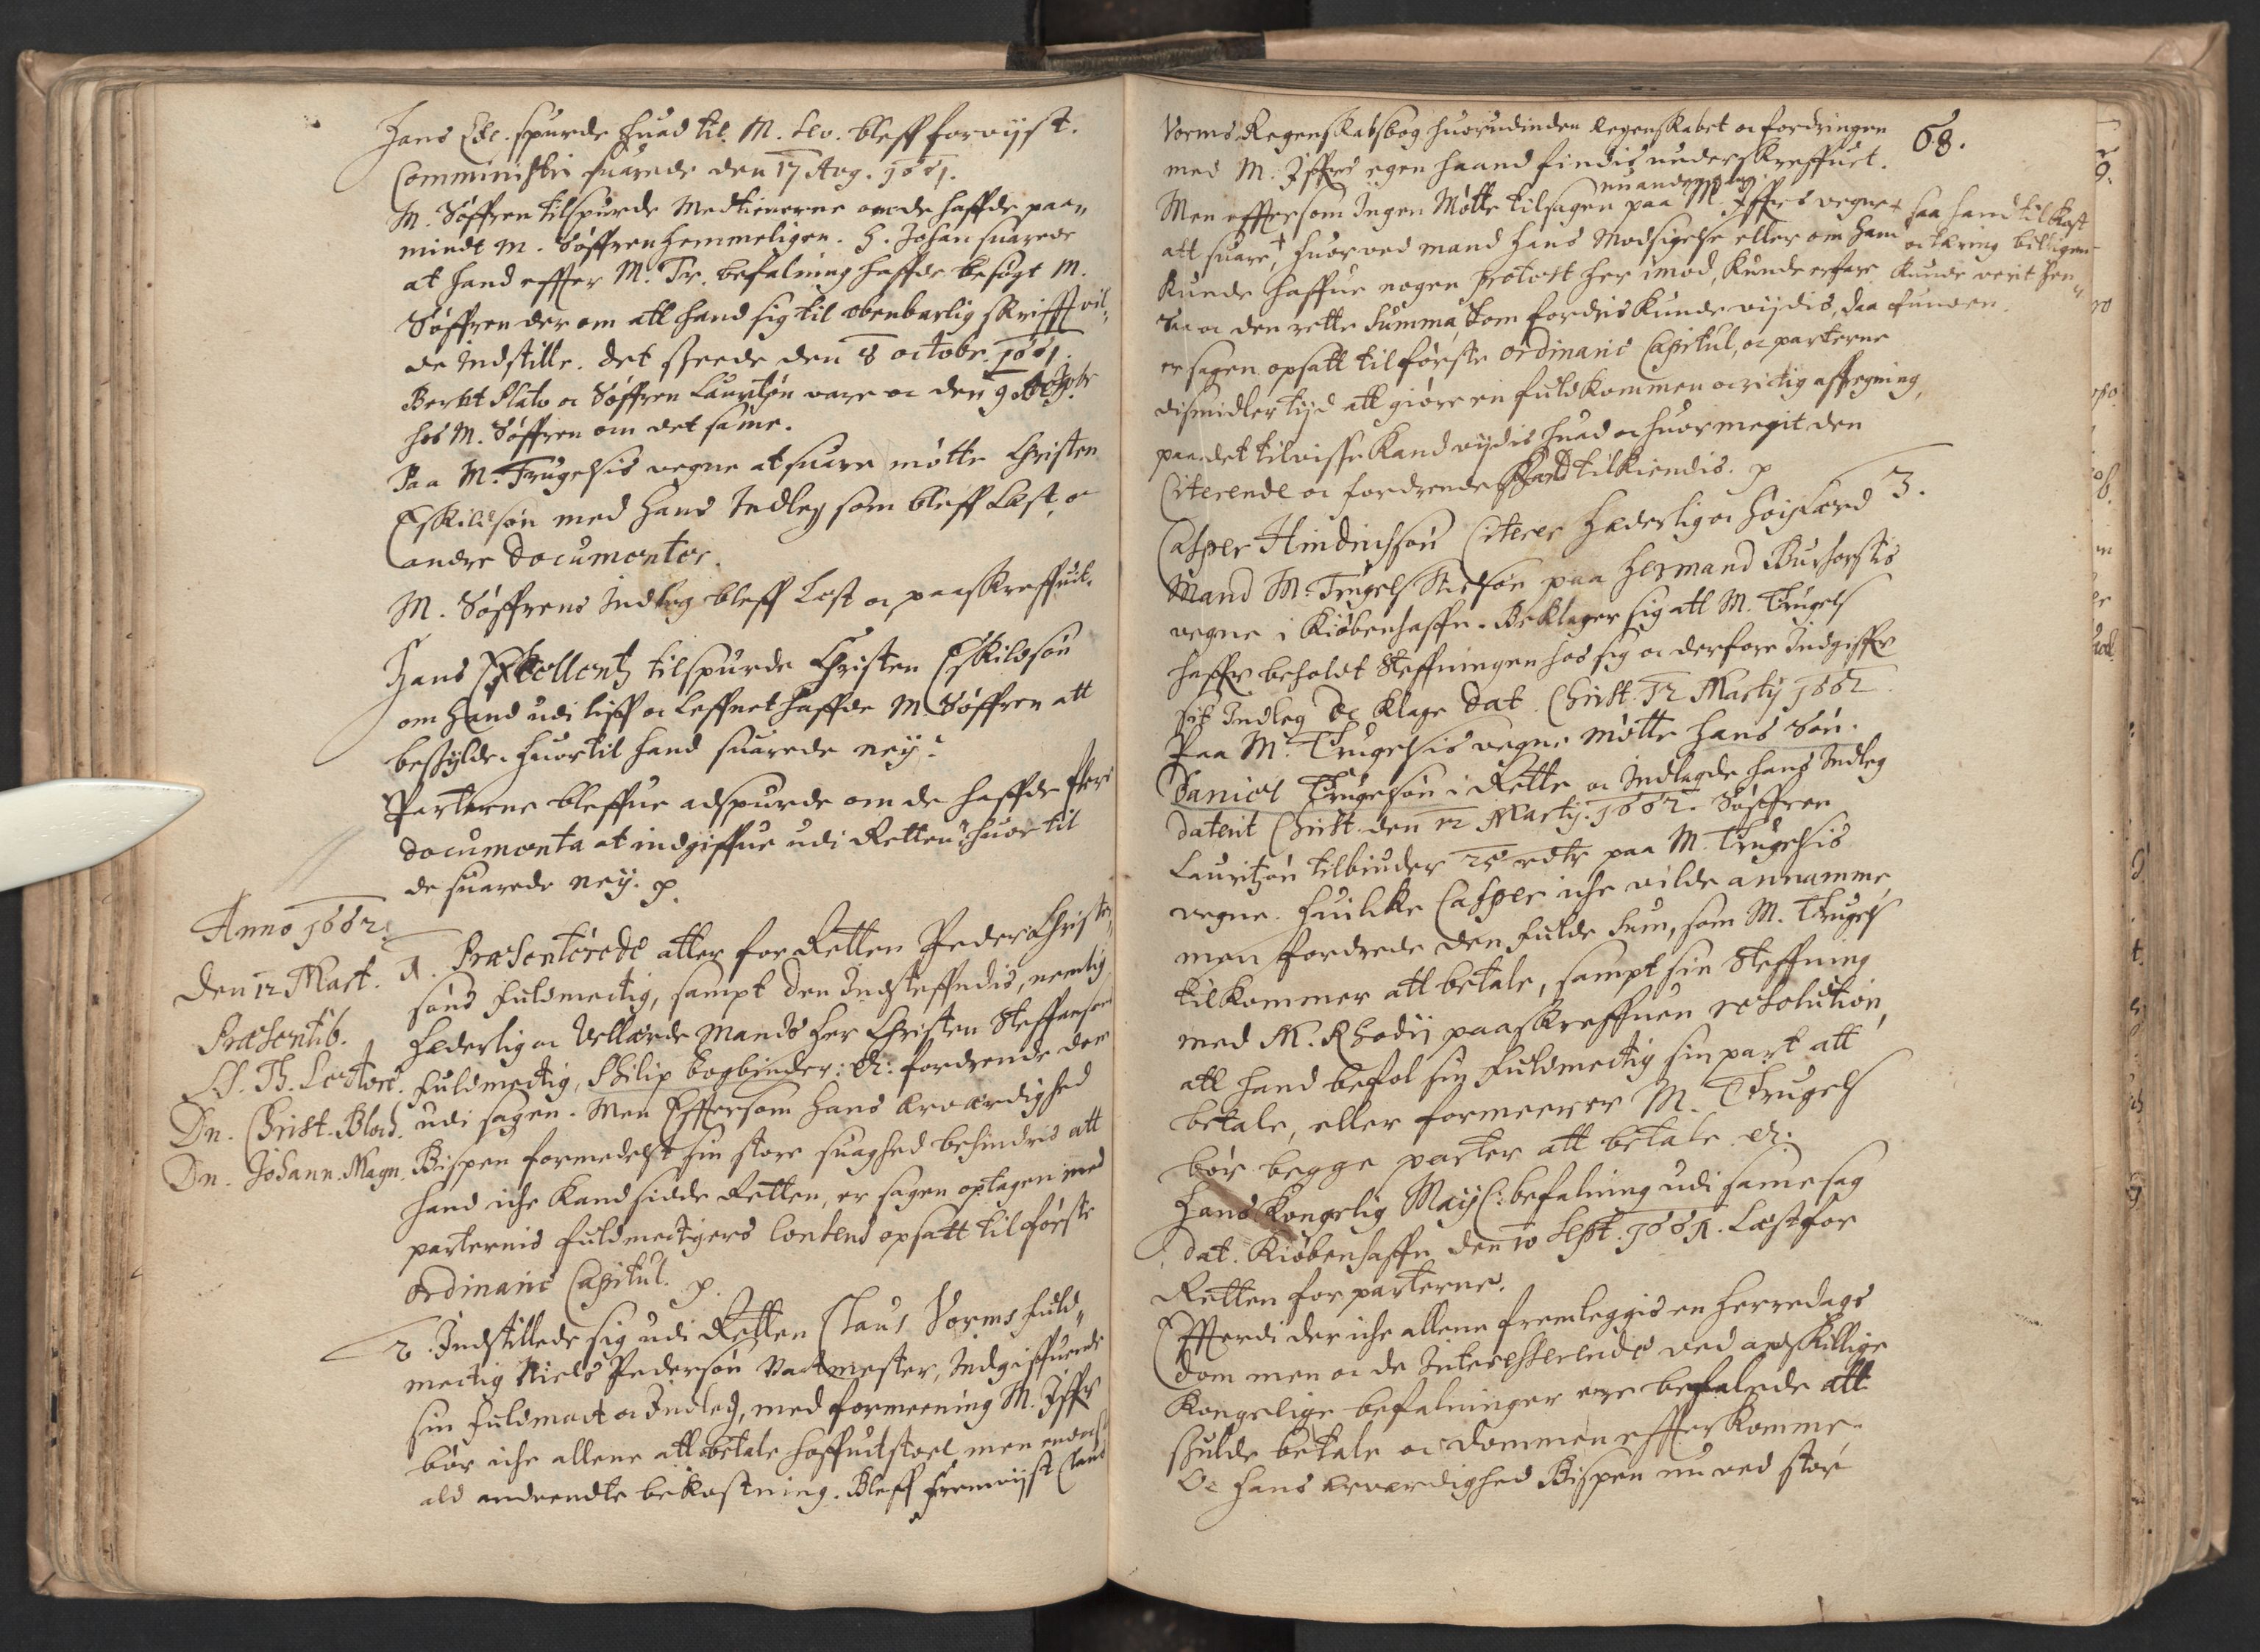 Hans Exc. spurde huad til M. Sev. bleff forvijst.
Comministri suarede den 17 Aug. 1661.
M. Søffren tilspurde Medtienerne om de haffde paa„
mindt M. Søffren hemmeligen. H. Johan suarede
at hand effter M. Tr. befalning haffde besøgt M.
Søffren der om att hand sig til obenbarlig skrifft vil„
de Indstille. det skeede den 8 octobr. 1661.
Berent Plato oc Søffren Lauritzøn vare oc den 9 Octobr
hos M. Søffren om det same.
Paa M. Trugelsis vegne at suare møtte Christen
Eskildsøn med hans Indleg som bleff Læst, oc
andre Documenter.
M. Søffrens Indleg bleff Lest oc paaskreffuet.
Hans Excellentz tilspurde Christen Eskildsøn
om hand udi liff oc Leffnet haffde M. Søffren att
beskylde. huortil hand suarede neij.
Parterne bleffue adspurde om de haffde fleere
documenta at indgiffue udi Retten? huortil
de suarede neij. p.
Anno 1662.
den 12 Mart.
Præsentib.
Th. Lectore.
Dn. Christ. Blach.
Dn. Johann. Magn.
1. Præsenterede atter for Retten Peder Christen„
søns fuldmectig, sampt den Indsteffndis, nemlig
hæderlig oc Vellærde Mands Her Christen Steffensens
fuldmectig, Philip bogbinder: etc: fordrende dom
udi sagen. Men Effersom hans ærværdighed
Bispen formedelst sin store suaghed behindris att
hand iche kand sidde Retten, er sagen optagen med
parternis fuldmectigers Contens opsatt til første
ordinarie Capitul. p.
2. Indstillede sig udi Retten Claus Vorms fuld„
mectig Niels Pedersøn Vactmester, Indgiffuende
sin fuldmact oc Indleg, med formeening M. Iffver
bør iche allene att betale hoffuitstoel men endoch
ald anvendte bekostning. Bleff fremvijst Claus
68.
Vorms Regenskabsbog huorudinden Regenskabet oc fordringen
med M. Iffvers egen haand findis underskreffuet.
Men effersom Ingen Møtte tilsagen paa M. Iffvers vegne
nu anden gang
att suare, † huor ved mand hans Modsigelse eller om hand
† saa hand til kost
oc tæring billigen
kunde verit hen„
funden.
kunde haffue nogen Protest her imod, kunde erfare
saa oc den rette Summa, som fordris kunde vijdis, daa
er sagen opsatt til første ordinarie Capitul, oc parterne
dismidlertijd att giøre en fuldkommen oc rictig affregning,
paa det til visse kand vijdis huad oc huor megit den
Citerende oc fordrende kand tilkiendis. p
3.
Casper Hindrichsøn Citerer Hæderlig oc høijlærd
Mand M. Trugels Nielsøn paa Hermand Burhorstis
vegne i Kiøbenhaffn. Beklager sig att M. Trugels
haffver beholdt Steffningen hos sig oc derfore Indgiffver
sit Indleg oc klage Dat. Christ. 12 Martij 1662.
Paa M. Trugelsis vegne møtte hans Søn.
Daniel Trugelsøn i Rette oc Indlagde hans Indleg
daterit Christ. den 12 Martij. 1662. Søffren
Lauritzøn tilbiuder 25 rdlr paa M. Trugelsis
vegne. huilke Casper iche vilde annamme,
men fordrede den fulde Sum, som M. Trugels
tilkommer att betale, sampt sin Steffning
med M. Rhodij paaskreffuen resolution,
att hand befol sin fuldmectig sin part att
betale, eller formeener M. Trugels
bør begge parter att betale etc:
Hans Kongelig Maijts: befalning udi same sag
dat. Kiøbenhaffn den 10 Sept. 1661. Læst for
Retten for parterne.
Efferdi der iche allene fremleggis en Herredags
dom men oc de Interesserende ved adskillige
Kongelige befalninger ere befalede att
skulde betale oc dommen effterkomme.
Oc hans ærværdighed Bispen nu ved stor